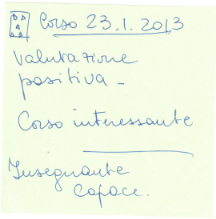 Corso 23.1.2013
Valutazione
positiva -
Corso interessante
Insegnante
capace.